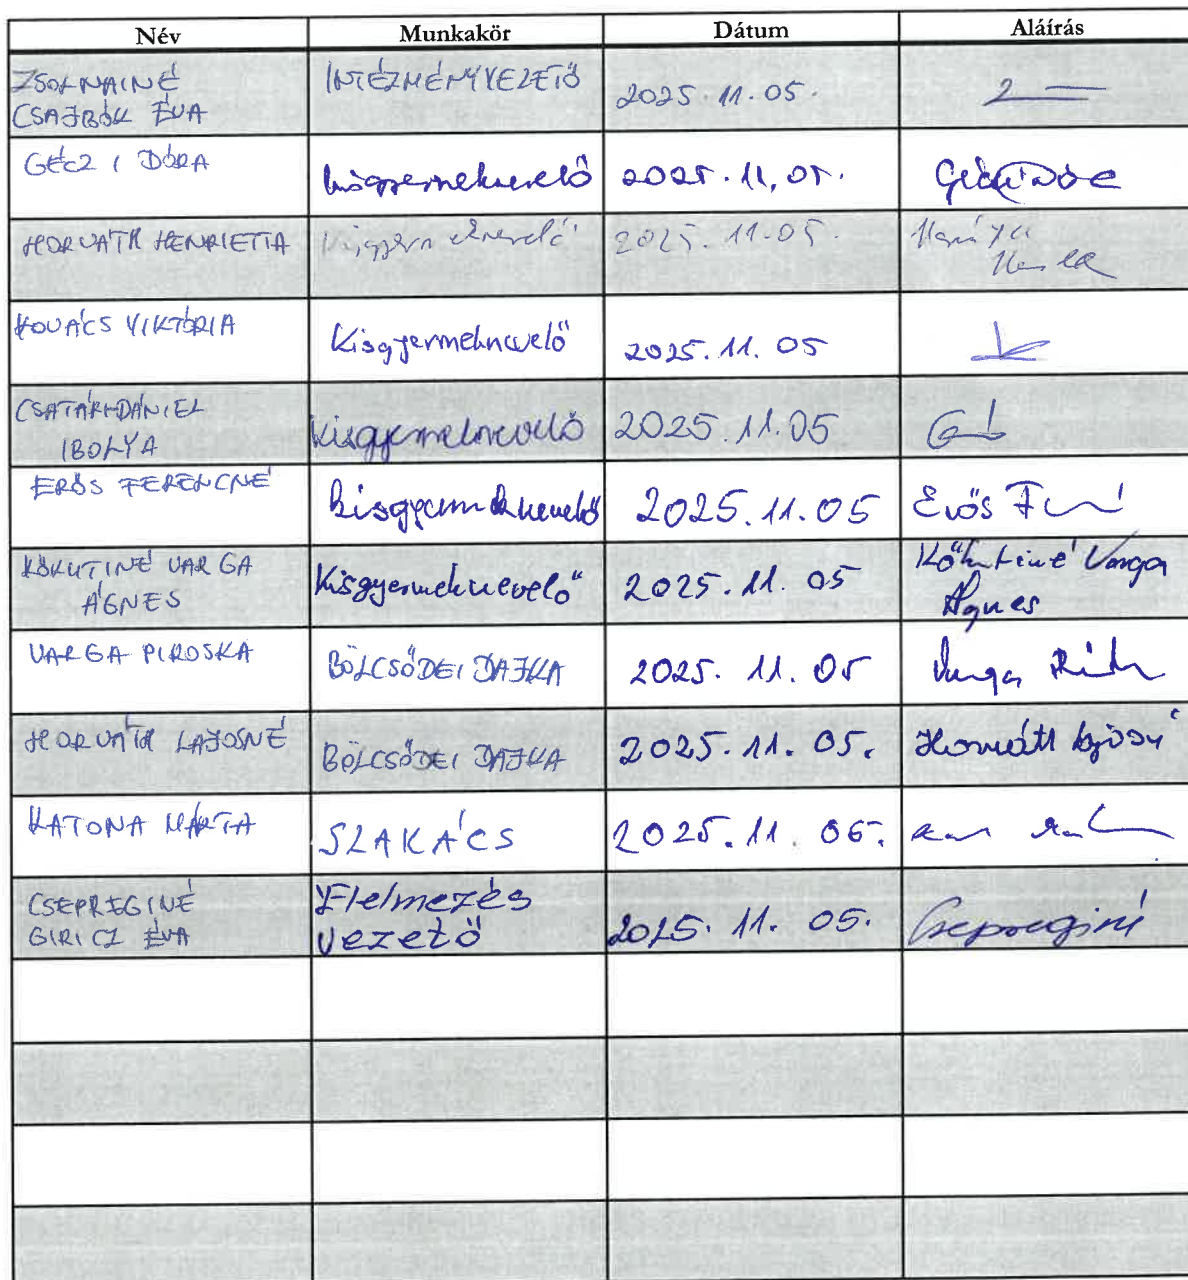 Név Munkakör Dátum Aláírás
ZSOLNAINÉ INTÉZMÉNYVEZETŐ 2025.11.05.
CSAJBÓK ÉVA
GÉCZI DÓRA kisgyermeknevelő 2025.11.05.
HORVÁTH HENRIETTA kisgyermeknevelő 2025.11.05.
KOVÁCS VIKTÓRIA Kisgyermeknevelő 2025.11.05
CSATÁRI-DÁNIEL kisgyermeknevelő 2025.11.05
IBOLYA
ERŐS FERENCNÉ kisgyermeknevelő 2025.11.05 Erős
KŐKUTINÉ VARGA Kisgyermeknevelő 2025.11.05 Kőkutiné Varga
ÁGNES Ágnes
VARGA PIROSKA BÖLCSŐDEI DAJKA 2025.11.05 Varga
HORVÁTH LAJOSNÉ BÖLCSŐDEI DAJKA 2025.11.05. Horváth Lajosné
KATONA MÁRTA SZAKÁCS 2025.11.05.
CSEPREGINÉ Élelmezés 2025.11.05. Csepreginé
GIRICZ ÉVA vezető